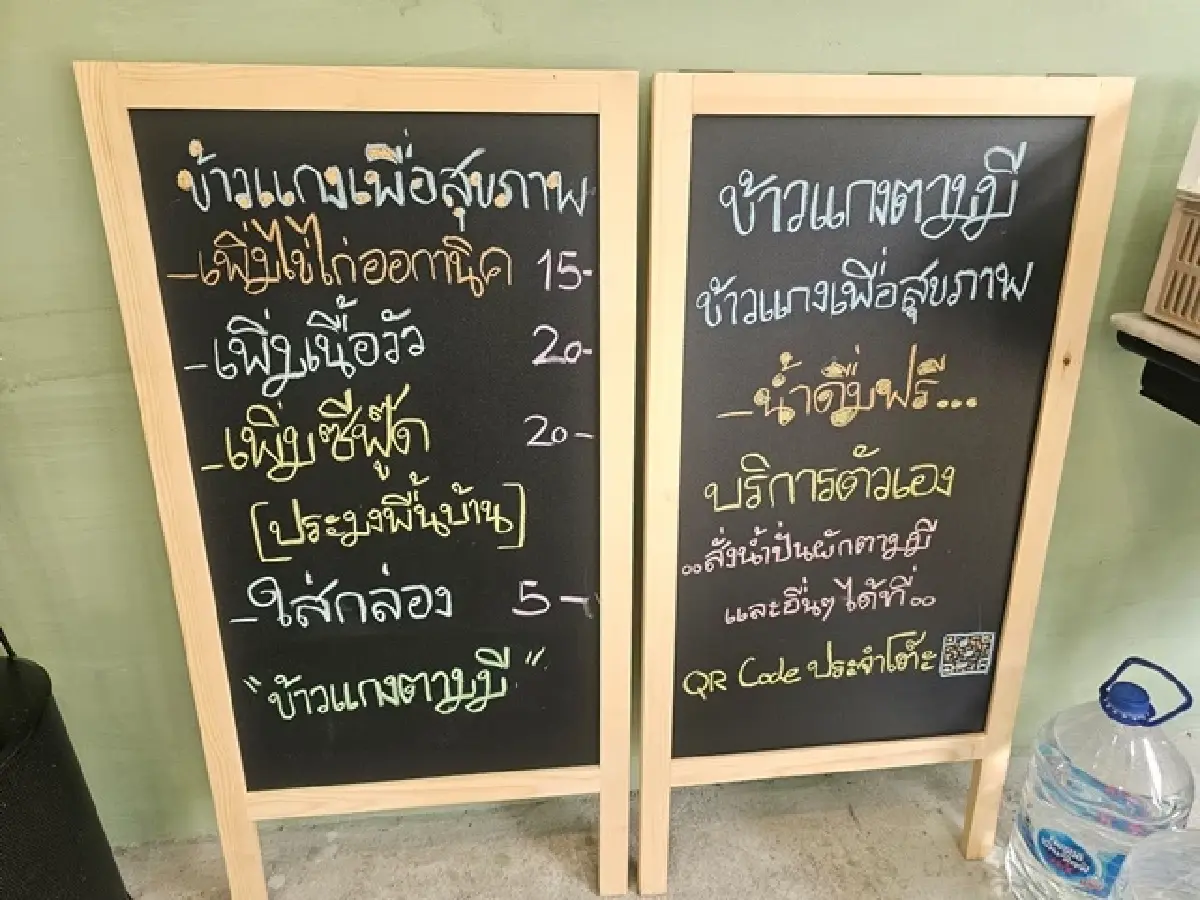 ข้าวแกงเพื่อสุขภาพ
-เพิ่มไข่ไก่ออกานิค 15-
-เพิ่มเนื้อวัว 20-
-เพิ่มซีฟู๊ด 20-
[ประมงพื้นบ้าน]
-ใส่กล่อง 5-
"ข้าวแกงตามมี"
ข้าวแกงตามมี
ข้าวแกงเพื่อสุขภาพ
-น้ำดื่มฟรี...
บริการตัวเอง
..สั่งน้ำปั่นผักตามมี
และอื่นๆ ได้ที่..
QR Code ประจำโต๊ะ